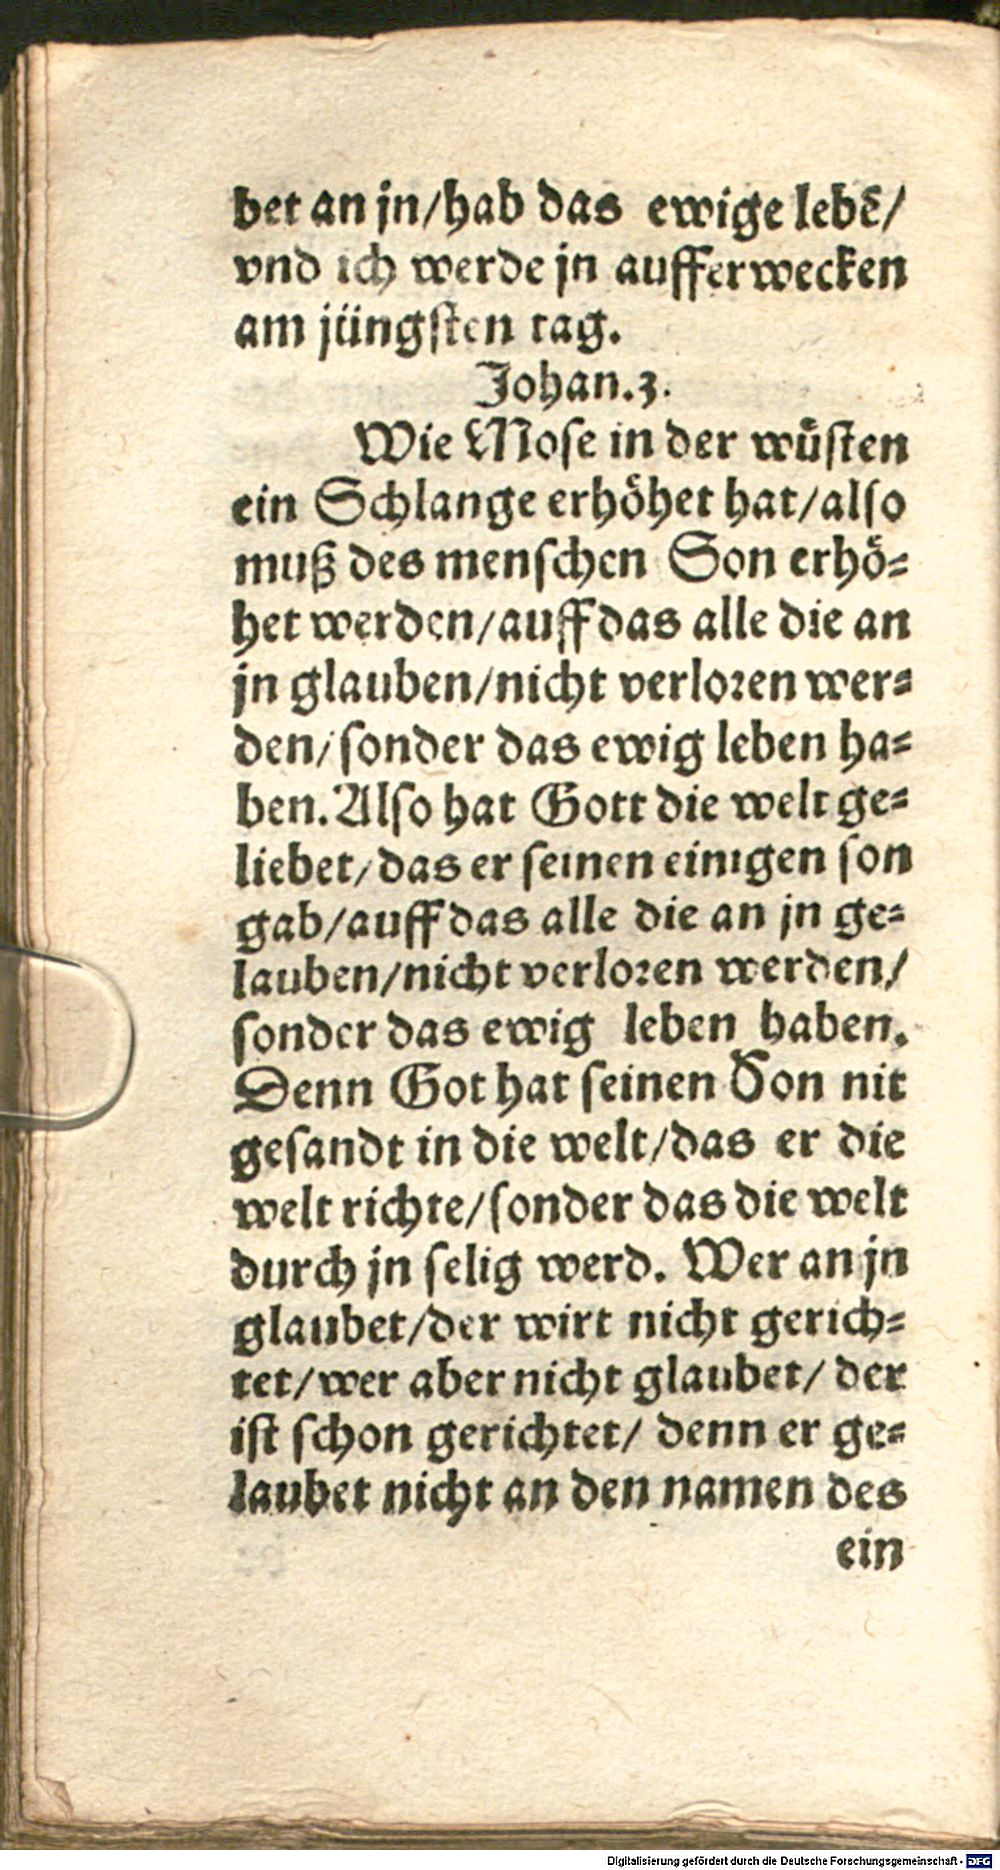 bet an jn/hab das ewige lebē/
vnd ich werde jn aufferwecken
am jüngsten tag.
Johan.3.
Wie Mose in der wüsten
ein Schlange erhöhet hat/also
muß des menschen Son erhö⸗
het werden/auff das alle die an
jn glauben/nicht verloren wer⸗
den/sonder das ewig leben ha⸗
ben. Also hat Gott die welt ge⸗
liebet/das er seinen einigen son
gab/auff das alle die an jn ge⸗
lauben/nicht verloren werden/
sonder das ewig leben haben.
Denn Got hat seinen Son nit
gesandt in die welt/das er die
welt richte/sonder das die welt
durch jn selig werd. Wer an jn
glaubet/der wirt nicht gerich⸗
tet/wer aber nicht glaubet/ der
ist schon gerichtet/ denn er ge⸗
laubet nicht an den namen des
ein
Digitalisierung gefördert durch die Deutsche Forschungsgemeinschaft - DFG